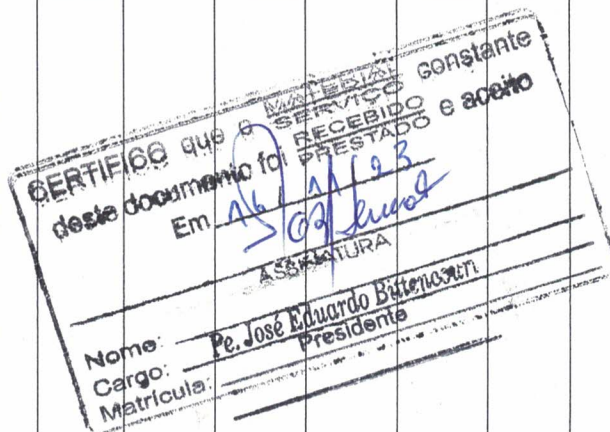 CERTIFICO que o MATERIAL constante
SERVIÇO
deste documento foi RECEBIDO e aceito
PRESTADO
Em 16/11/23
ASSINATURA
Nome: Pe. José Eduardo Bittencourt
Cargo: Presidente
Matrícula: